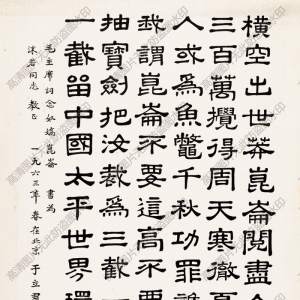 橫空出世莽崑崙閱盡
三百萬攪得周天寒徹
人或為魚鼈千秋功罪
我謂崑崙不要這高不要
抽寶劍把汝裁為三截一
一截畱中國太平世界環
毛主席詞念奴嬌 崑崙 書為
沫若同志 教正 一九六三年 春在北京 于立羣
高清图片无此防盗水印